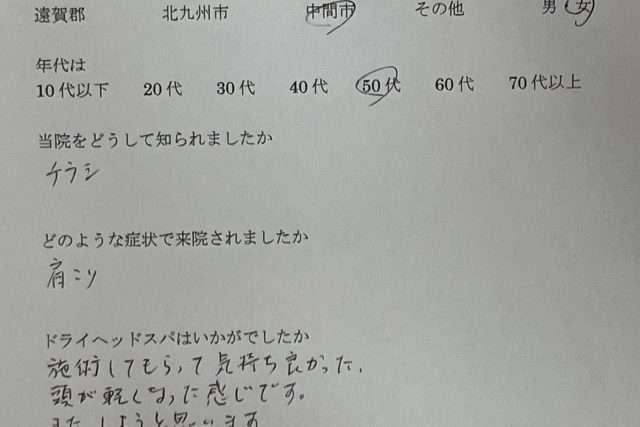 遠賀郡 北九州市 中間市 その他 男 女
年代は
10代以下 20代 30代 40代 50代 60代 70代以上
当院をどうして知られましたか
チラシ
どのような症状で来院されましたか
肩こり
ドライヘッドスパはいかがでしたか
施術してもらって気持ち良かった。
頭が軽くなった感じです。
また しようと思います